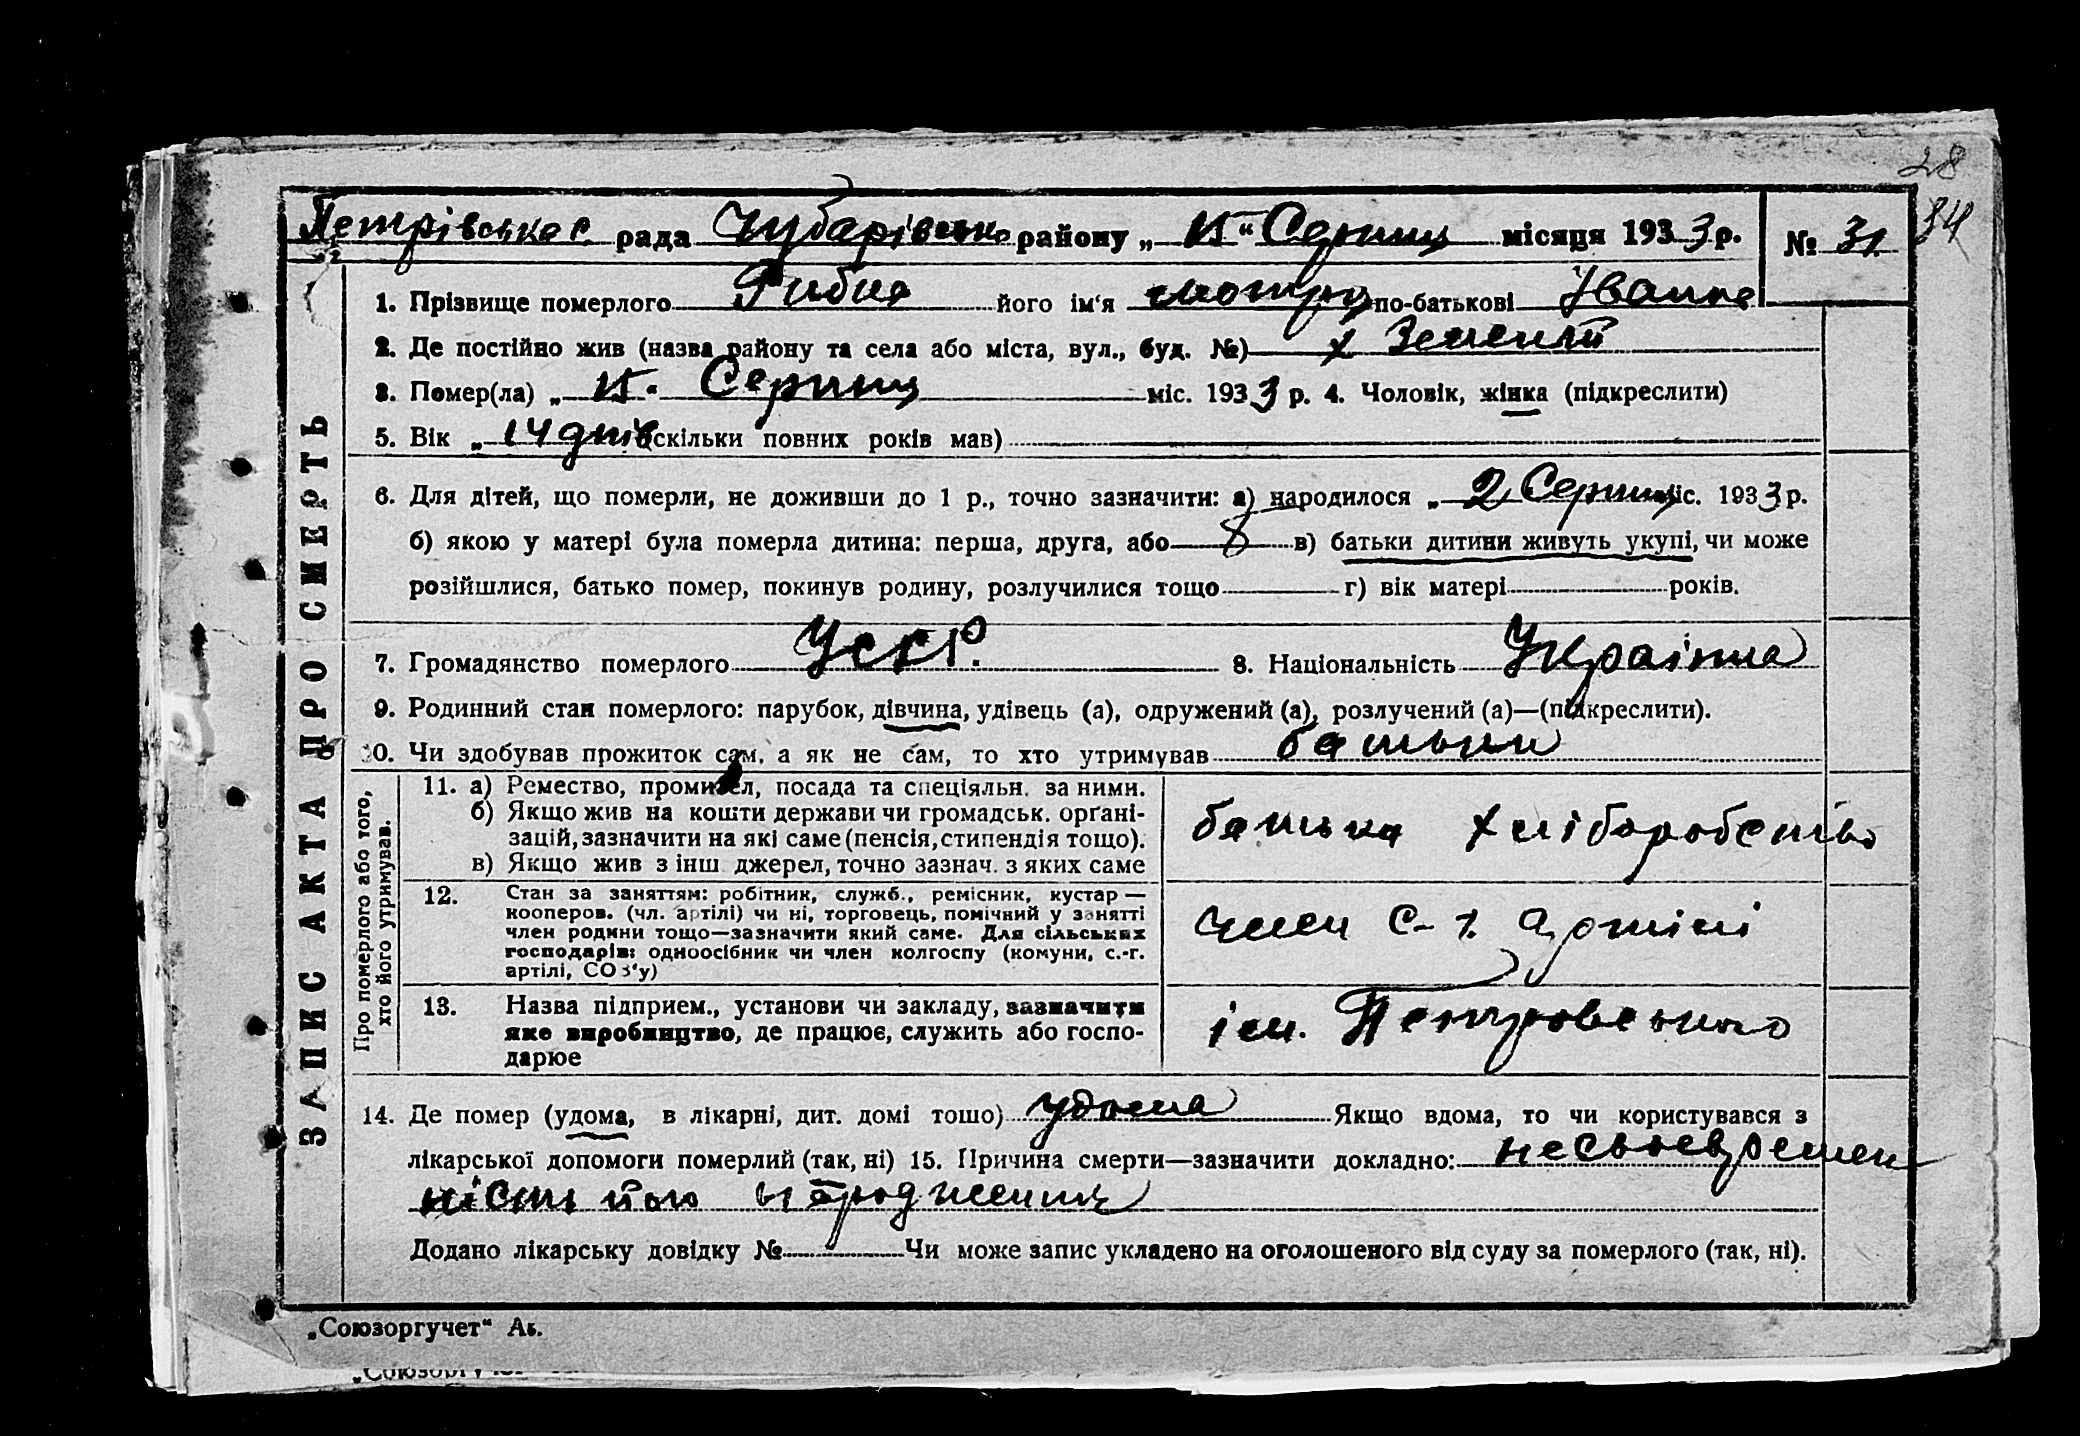 28
Петрівська с. рада Чубарівсько району „ 15 “ Серпня місяця 1933 р. № 31. 34
1. Прізвище померлого Рибка його ім‘я мотря по-батькові Іванне
2. Де постійно жив (назва району та села або міста, вул., буд. №) х Зелений
3. Помер(ла) „ 15 “ Серпня міс. 1933 р. 4. Чоловік, жінка (підкреслити)
5. Вік „ 14 днів (скільки повних років мав)
6. Для дітей, що померли, не доживши до 1 р., точно зазначити: а) народилося „ 2 Серпня міс. 1933 р.
б) якою у матері була померла дитина: перша, друга, або 8 в) батьки дитини живуть укупі, чи може
розійшлися, батько помер, покинув родину, розлучилися тощо г) вік матері років.
7. Громадянство померлого УССР. 8. Національність Українка
9. Родинний стан померлого: парубок, дівчина, удівець (а), одружений (а), розлучений (а)—(підкреслити).
10. Чи здобував прожиток сам, а як не сам, то хто утримував батьки
Про померлого або того, хто його утримував.
11. а) Ремество, промисел, посада та спеціяльн. за ними.
б) Якщо жив на кошти держави чи громадськ. орґані-
зацій, зазначити на які саме (пенсія, стипендія тощо).
в) Якщо жив з інш джерел, точно зазнач. з яких саме
батька хліборобство
12. Стан за заняттям: робітник, служб., ремісник, кустар —
кооперов. (чл. артілі) чи ні, торговець, помічний у занятті
член родини тощо—зазначити який саме. Для сільських
господарів: одноосібник чи член колгоспу (комуни, с.-г.
артілі, СОЗ‘у)
член С-г. артілі
13. Назва підприєм., установи чи закладу, зазначити
яке виробництво, де працює, служить або госпо-
дарює
ім. Петровського
14. Де помер (удома, в лікарні, дит. домі тошо) удома Якщо вдома, то чи користувався з
лікарської допомоги померлий (так, ні) 15. Причина смерти—зазначити докладно: несвоевремен
ність його народження
Додано лікарську довідку № Чи може запис укладено на оголошеного від суду за померлого (так, ні).
ЗАПИС АКТА ПРО СМЕРТЬ
„Союзоргучет“ Ак.